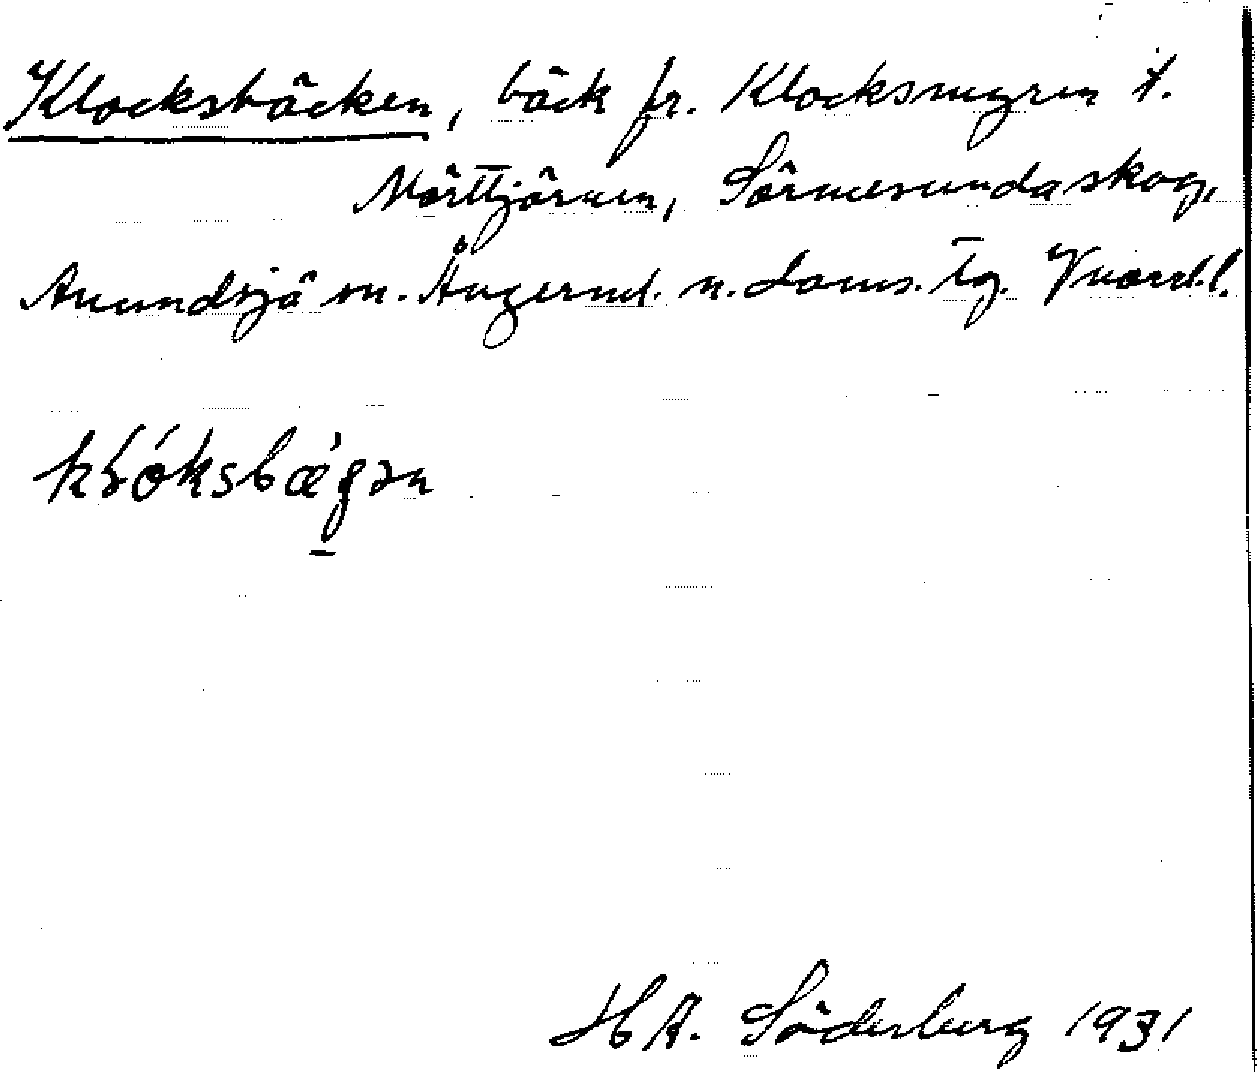 Klocksbäcken, bäck fr. Klocksmyren t.
Mörttjärnen, Sörmesundaskog,
Anundsjö sn. Ångerml. n. doms. tg. Vnorrl. l.
HA. Söderberg 1931